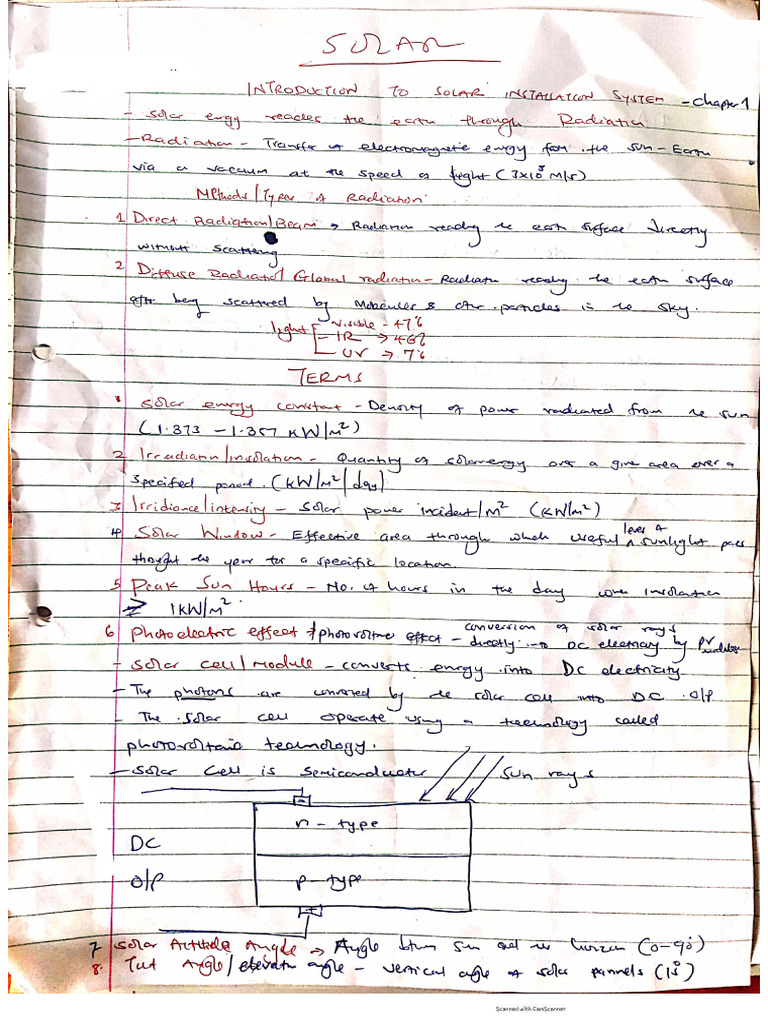 SOLAR
INTRODUCTION TO SOLAR INSTALLATION SYSTEM - Chapter 1
- Solar enrgy reaches the earth through Radiation
- Radiation - Transfer of electromagnetic enrgy from the sun - Earth
via a vacuum at the speed of light (3x10⁸ M/s)
Methods/Types of Radiation
1 Direct Radiation/Beam → Radiation reaching the earth surface directly
without scattering
2 Diffuse Radiation/Global radiation - Radiation reaching the earth surface
after being scattered by Molecules & other particles in the sky.
light visible - 47%
- IR → 46%
UV → 7%
TERMS
1 Solar energy constant - Density of power radiated from the sun
(1.373 - 1.357 KW/m²)
2 Irradiation/insolation - Quantity of solar energy over a given area over a
specified period. (KW/m²/day)
3 Irridiance/intensity - Solar power incident/m² (KW/m²)
4 Solar Window - Effective area through which useful level of sunlight pass
thought the year for a specific location.
5 Peak Sun Hours - No. of hours in the day when insolation
≥ 1KW/m².
6 Photoelectric effect / photovoltaic effect - conversion of solar rays directly to DC electricity by PV modules
- Solar cell/module - converts enrgy into DC electricity
- The photons are converted by the solar cell into DC O/P
- The solar cell operate using a technology called
photovoltaic technology.
- Solar Cell is semiconductor
Sun rays
n - type
DC
O/P
p - type
7 Solar Altitude Angle → Angle btwn sun and the horizon (0-90°)
8. Tilt Angle/elevatn angle - vertical angle of solar pannels (15°)
Scanned with CamScanner